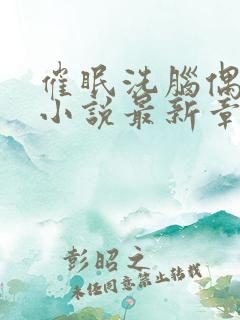 催眠洗腦偶
小說最新章
彭昭之
未任同意禁止轉載